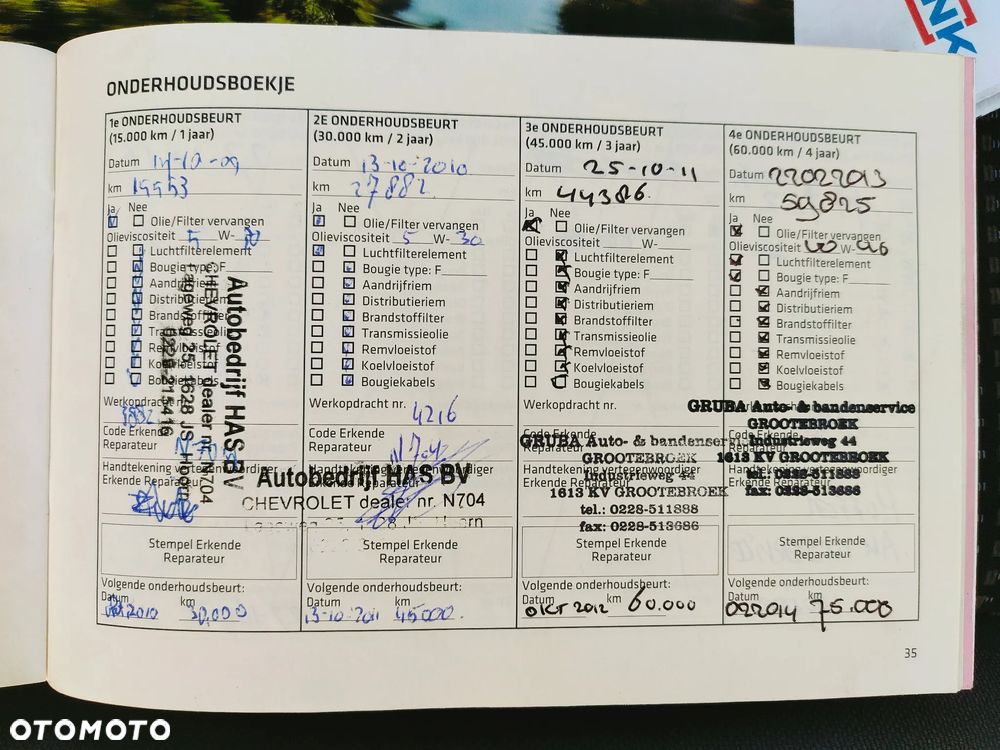 NK
ONDERHOUDSBOEKJE
1e ONDERHOUDSBEURT
(15.000 km / 1 jaar)
Datum 14-10-09
km 19953
Ja Nee
Olie/Filter vervangen
Olieviscositeit 5 W-30
Luchtfilterelement
Bougie type: F
Aandrijfriem
Distributieriem
Brandstoffilter
Transmissieolie
Remvloeistof
Koelvloeistof
Bougiekabels
Werkopdracht nr.
Code Erkende
Reparateur
Handtekening vertegenwoordiger
Erkende Reparateur
Autobedrijf HAS BV
CHEVROLET dealer nr. N704
Lageweg 25, 1628 JS Hoorn
0229-215416
Stempel Erkende
Reparateur
Volgende onderhoudsbeurt:
Datum km
2010 30.000
2E ONDERHOUDSBEURT
(30.000 km / 2 jaar)
Datum 13-10-2010
km 27882
Ja Nee
Olie/Filter vervangen
Olieviscositeit 5 W-30
Luchtfilterelement
Bougie type: F
Aandrijfriem
Distributieriem
Brandstoffilter
Transmissieolie
Remvloeistof
Koelvloeistof
Bougiekabels
Werkopdracht nr. 4216
Code Erkende
Reparateur N704
Autobedrijf HAS BV
CHEVROLET dealer nr. N704
Stempel Erkende
Reparateur
Volgende onderhoudsbeurt:
Datum km
13-10-2011 45000
3e ONDERHOUDSBEURT
(45.000 km / 3 jaar)
Datum 25-10-11
km 44386
Ja Nee
Olie/Filter vervangen
Olieviscositeit W-
Luchtfilterelement
Bougie type: F
Aandrijfriem
Distributieriem
Brandstoffilter
Transmissieolie
Remvloeistof
Koelvloeistof
Bougiekabels
Werkopdracht nr.
Code Erkende
Reparateur
GRUBA Auto- & bandenservice
GROOTEBROEK
Industrieweg 44
1613 KV GROOTEBROEK
tel.: 0228-511888
fax: 0228-513686
Handtekening vertegenwoordiger
Erkende Reparateur
Stempel Erkende
Reparateur
Volgende onderhoudsbeurt:
Datum km
OKT 2012 60.000
4e ONDERHOUDSBEURT
(60.000 km / 4 jaar)
Datum 22022013
km 59825
Ja Nee
Olie/Filter vervangen
Olieviscositeit W-
Luchtfilterelement
Bougie type: F
Aandrijfriem
Distributieriem
Brandstoffilter
Transmissieolie
Remvloeistof
Koelvloeistof
Bougiekabels
GRUBA Auto- & bandenservice
GROOTEBROEK
Industrieweg 44
1613 KV GROOTEBROEK
tel.: 0228-511888
fax: 0228-513686
Code Erkende
Reparateur
Handtekening vertegenwoordiger
Erkende Reparateur
Stempel Erkende
Reparateur
Volgende onderhoudsbeurt:
Datum km
022014 75.000
35
OTOMOTO